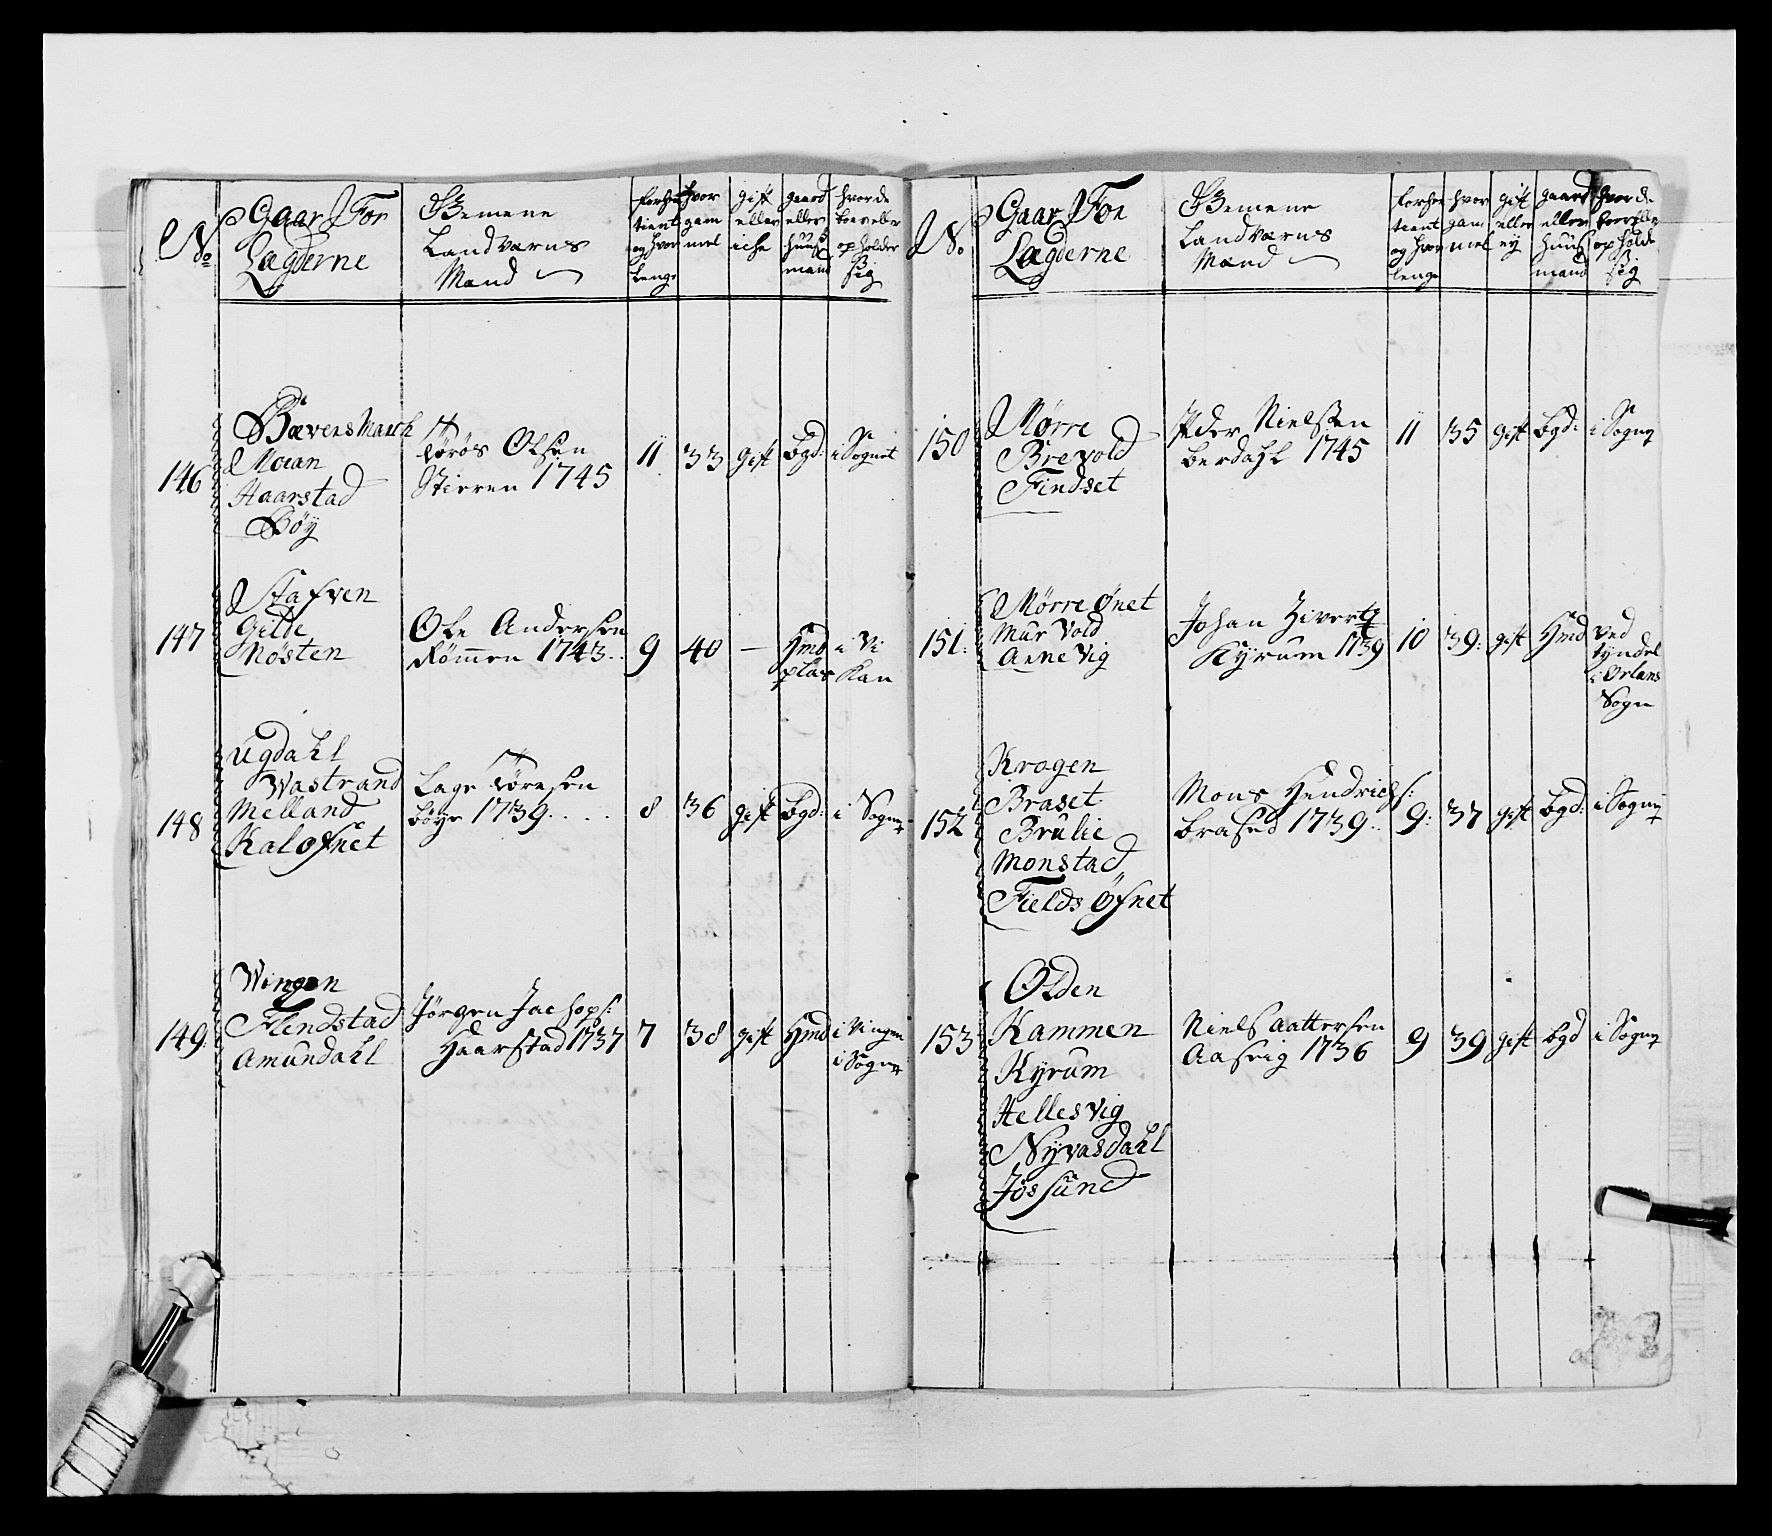 No
Gaar For
Lægderne
Gemene
Landværns
Mænd
forhen
tient
og hvor
lenge
hvor
gam
mel
gift
eller
iche
gaard
eller
huus
mand
hvor de
boer eller
opholder
sig
146
Bævens March
Moian
Haarstad
Böÿ
Törös Olsen
Stirren 1745
11
33
gift
bgd:
i Sognet
147
Stafven
Gilde
Nösten
Ole Andersen
Römmen 1743..
9
40
—
Hmd
plas
i Vi
Kan
148
Ugdahl
Wastrand
Melland
Kalofnet
Lage Töresen
böye 1739....
8
36
gift
bgd:
i Sogne
149.
Wingen
Flendstad
Amundahl
Jörgen Jachops:
Haarstad 1737
7
38
gift
Hmd
i Vingen
i Sogne
No
Gaar For
Lægderne
Gemene
Landværns
Mænd
forhen
tient
og hvor
lenge
hvor
gam
mel
gift
eller
eÿ
gaard
eller
huus
mand
hvor de
boer eller
opholde
sig
150
Mørre
Brevold
Findset
Peder Nielsen
berdahl 1745
11
35
gift
bgd:
i Sogne
151.
Mørre Ønet
Mur Vold
Anne Vig
Johan Zivertz
Kyrum 1739
10
39:
gift
Hmd
ved
Tyndel
i Ørlans
Sogn
152
Krogen
Braset
Brulie
Monstad
Fields Öfnet
Mons Hendrichs:
brased 1739..
9:
37
gift
bgd:
i Sogne
153
Olden
Kammen
Kyrum
Hellesvig
Nÿvasdahl
Jössund
Niels Aattersen
Aasvig 1736
9
39
gift
bgd
i Sogne